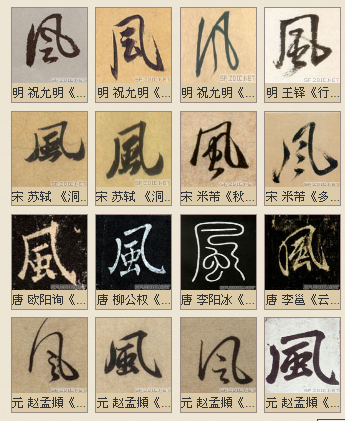 風 風 風 風
明 祝允明《... 明 祝允明《... 明 祝允明《... 明 王铎《行...
風 風 風 風
宋 苏轼 《洞... 宋 苏轼 《洞... 宋 米芾《秋... 宋 米芾《多...
風 風 風 風
唐 欧阳询《... 唐 柳公权《... 唐 李阳冰《... 唐 李邕《云...
風 風 風 風
元 赵孟頫《... 元 赵孟頫《... 元 赵孟頫《... 元 赵孟頫《...